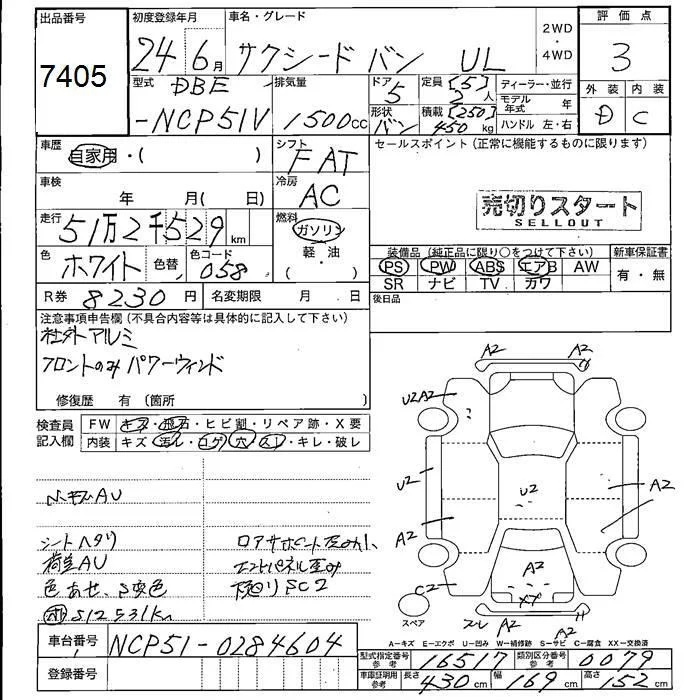 出品番号 初度登録年月 車名・グレード 2WD・4WD 評価点
7405 24年6月 サクシード バン UL 3
型式 DBE -NCP51V 排気量 1500cc ドア 5 形状 バン 定員 [5] 2人 積載 [250] 450kg ディーラー・並行 モデル年式 年 ハンドル 左・右 外装 D 内装 C
車歴 自家用・( ) シフト FAT セールスポイント(正常に機能するものに限ります)
車検 年 月( 日) 冷房 AC
売切りスタート
SELLOUT
走行 51万2千529km 燃料 ガソリン 軽・油 ( )
色 ホワイト 色替 色コード 058
装備品(純正品に限り○をつけて下さい) 新車保証書
PS PW ABS エアB AW 有・無
SR ナビ TV カワ
R券 8230円 名変期限 月 日 後日品
注意事項申告欄(不具合内容等は具体的に記入して下さい)
社外アルミ
フロントのみパワーウィンド
修復歴 有(箇所 )
検査員記入欄 FW キズ・飛石・ヒビ割・リペア跡・X要
内装 キズ・汚レ・コゲ・穴・スレ・キレ・破レ
A2 A2
U2A2
U2 U2 A2
A2
A2
C2 XP
スレ A2 A2
ハンキズAU
シートヘタリ
荷室AU
色あせ、S変色
S12531km
ロアサポート歪み小
エンドパネル歪み
下廻りSC2
スペア
A-キズ E-エクボ U-凹み W-補修跡 S-サビ C-腐食 XX-交換済
車台番号 NCP51-0284604
登録番号
型式指定番号 参考 16517 類別区分番号 参考 0079
車庫証明用 参考 長さ 430cm 幅 169cm 高さ 152cm